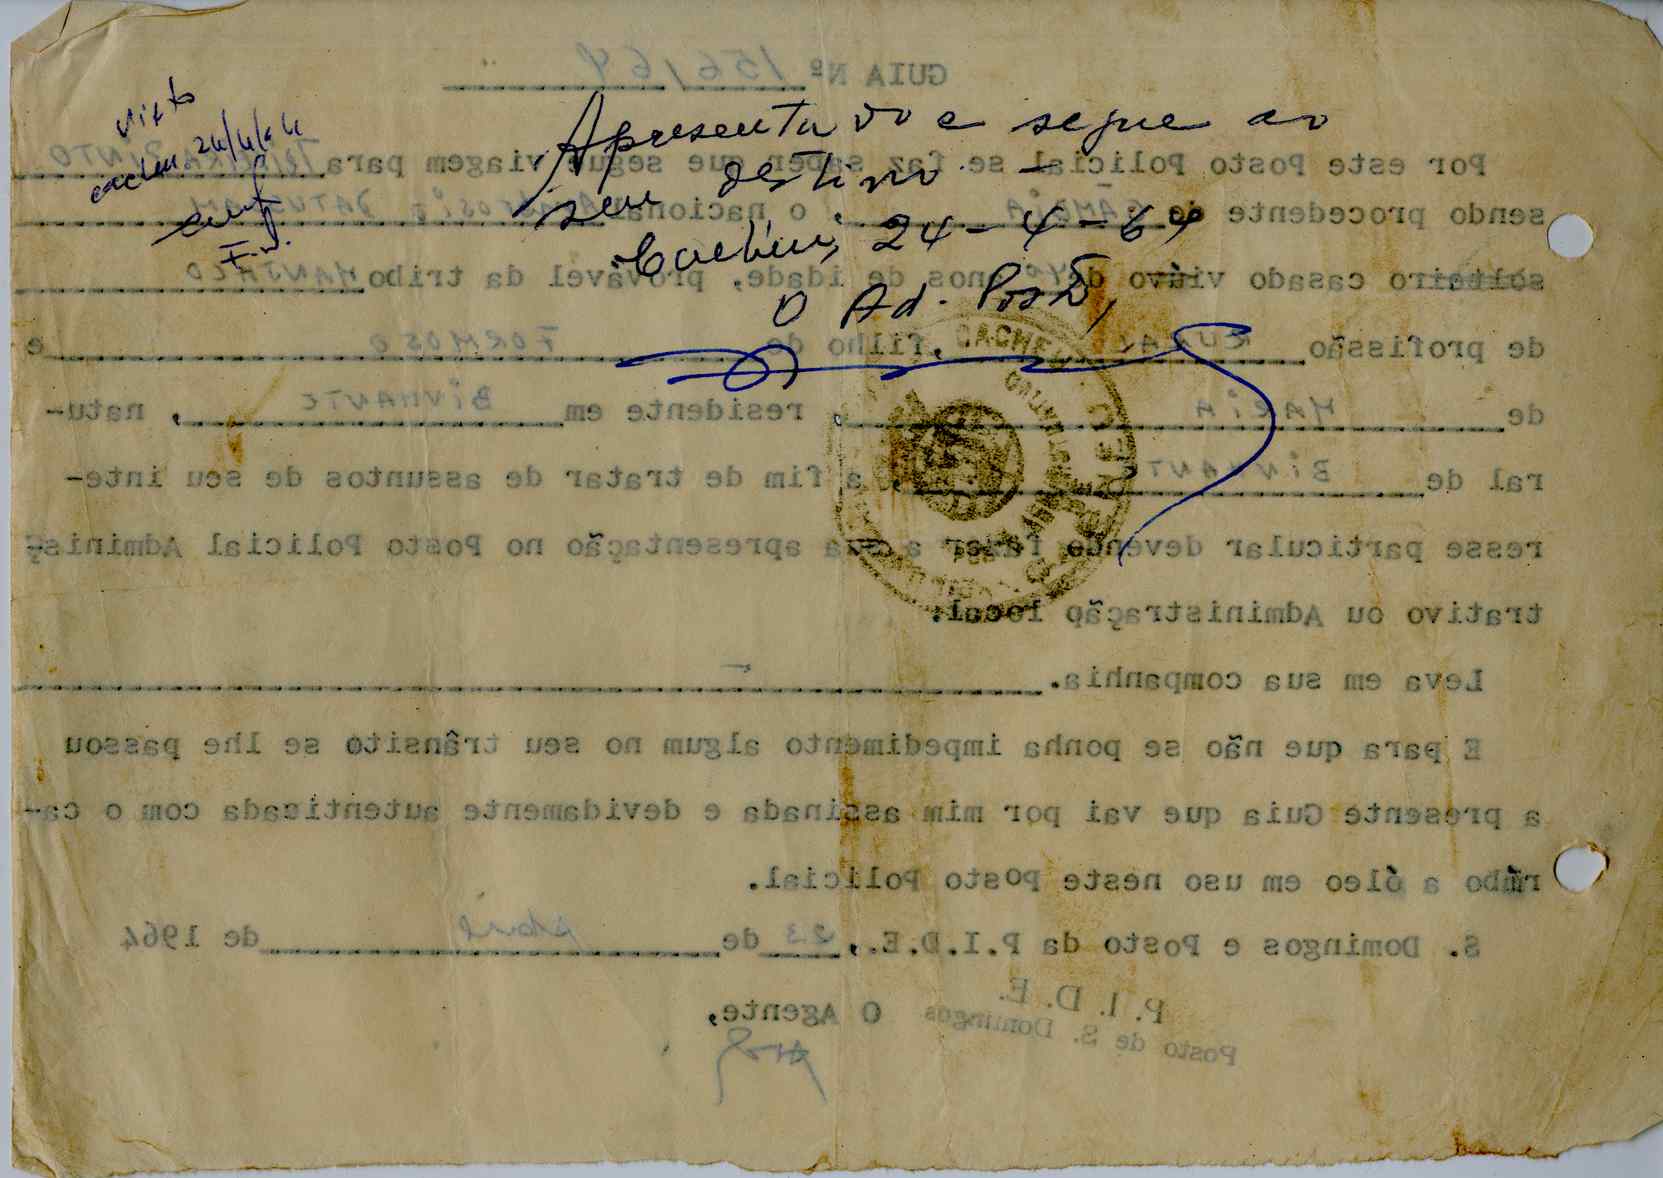 Visto
Apresentado e segue ao
seu destino -
Cacheu, 24-4-64
O Ad. Posto,
CACHEU
GUIA Nº 156/64
Por este Posto Policial se faz saber que segue viagem para TEIXEIRA PINTO
sendo procedente de GAMBIA, o nacional
solteiro casado viúvo de anos de idade, provável da tribo MANJACO
de profissão, filho de FORMOSO e
de MARIA, residente em, natu-
ral de, a fim de tratar de assuntos de seu inte-
resse particular devendo fazer a sua apresentação no Posto Policial Adminis-
trativo ou Administração local.
Leva em sua companhia.
E para que não se ponha impedimento algum no seu trânsito se lhe passou
a presente Guia que vai por mim assinada e devidamente autenticada com o ca-
rimbo a óleo em uso neste Posto Policial.
S. Domingos e Posto da P.I.D.E., 23 de Abril de 1964
O Agente,
P. I. D. E.
Posto de S. Domingos